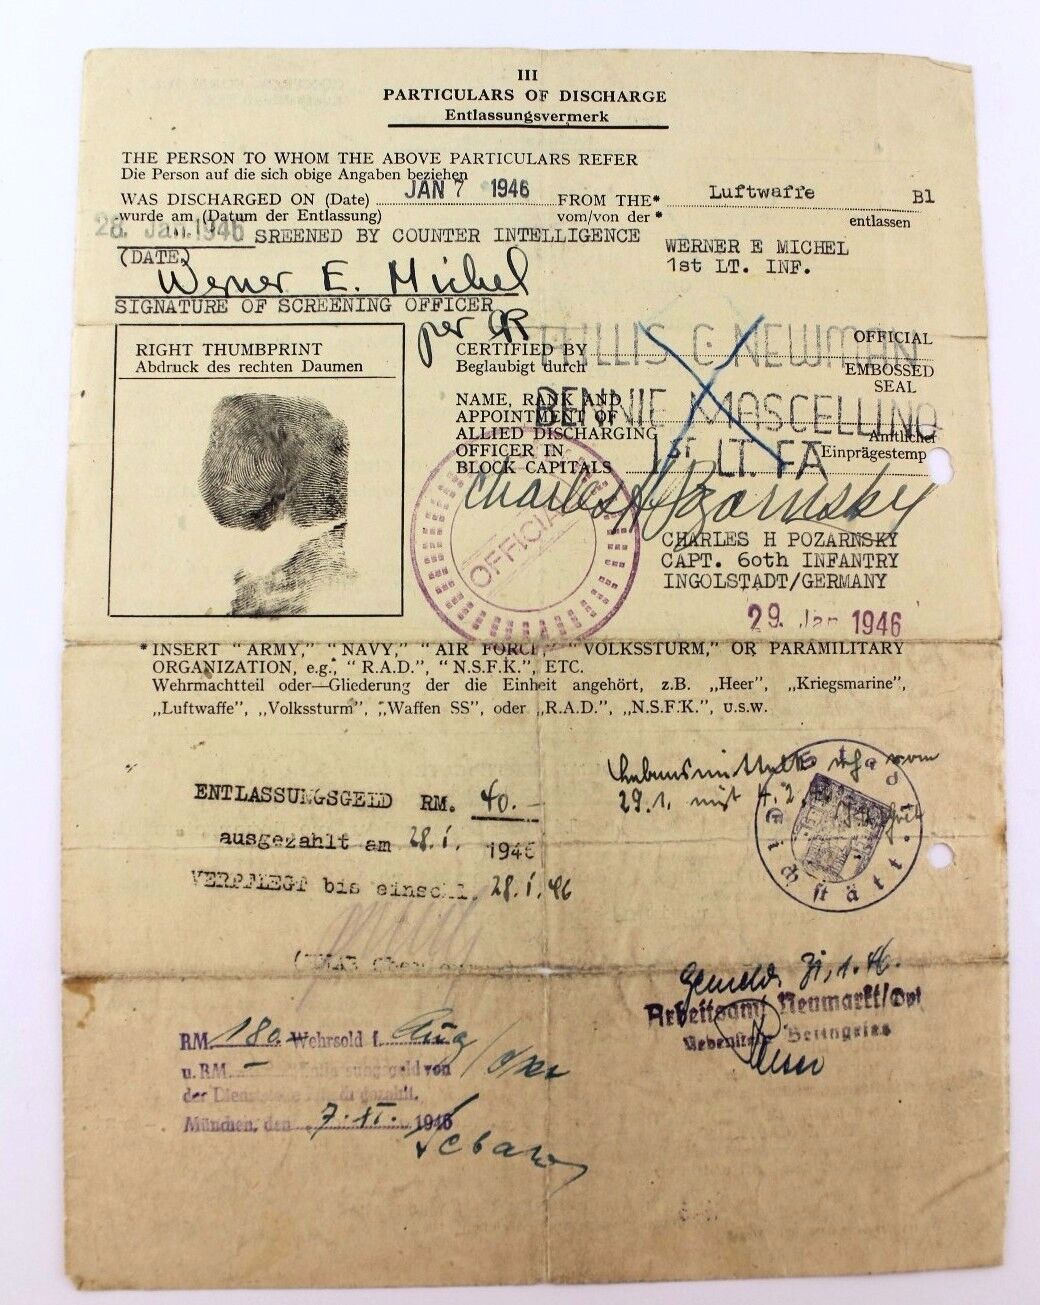 III
PARTICULARS OF DISCHARGE
Entlassungsvermerk
THE PERSON TO WHOM THE ABOVE PARTICULARS REFER
Die Person auf die sich obige Angaben beziehen
WAS DISCHARGED ON (Date) JAN 7 1946 FROM THE* Luftwaffe B1
wurde am (Datum der Entlassung) vom/von der * entlassen
28. Jan. 1946 SREENED BY COUNTER INTELLIGENCE
(DATE)
WERNER E MICHEL
1st LT. INF.
Werner E. Michel
SIGNATURE OF SCREENING OFFICER
per
RIGHT THUMBPRINT
Abdruck des rechten Daumen
CERTIFIED BY PHILLIS C NEWMAN OFFICIAL
Beglaubigt durch EMBOSSED
SEAL
NAME, RANK AND BENNIE MASCELLINO
APPOINTMENT OF
ALLIED DISCHARGING Amtlicher
OFFICER IN 1ST LT. FA Einprägestemp
BLOCK CAPITALS
Charles H Pozarnsky
OFFICIAL
CHARLES H POZARNSKY
CAPT. 60th INFANTRY
INGOLSTADT/GERMANY
29. Jan 1946
* INSERT "ARMY," "NAVY," "AIR FORCE," "VOLKSSTURM," OR PARAMILITARY
ORGANIZATION, e.g., "R.A.D.", "N.S.F.K.", ETC.
Wehrmachtteil oder—Gliederung der die Einheit angehört, z.B. „Heer", „Kriegsmarine",
„Luftwaffe", „Volkssturm", „Waffen SS", oder „R.A.D.", „N.S.F.K.", u.s.w.
ENTLASSUNGSGELD RM. 40.-
ausgezahlt am 28.1. 1946
VERPFLEGT bis einschl. 28.1.46
Lebensmittel vom
29.1. mit 4.2.
Stadt Eichstätt
gemeld. 31.1.46.
Arbeitsamt Neumarkt/Opf
Nebenstelle Beilngries
RM. 180.- Wehrsold f. Aug
u. RM. - Entlassungsgeld von
der Dienststelle gezahlt.
München, den 7.XI. 1946